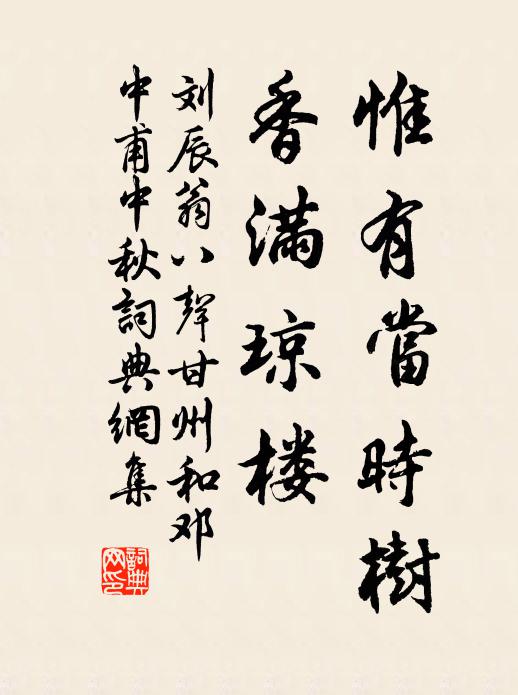 惟有當時樹
香满琼楼
刘辰翁八聲甘州和邓
中甫中秋詞典網集
詞典网印